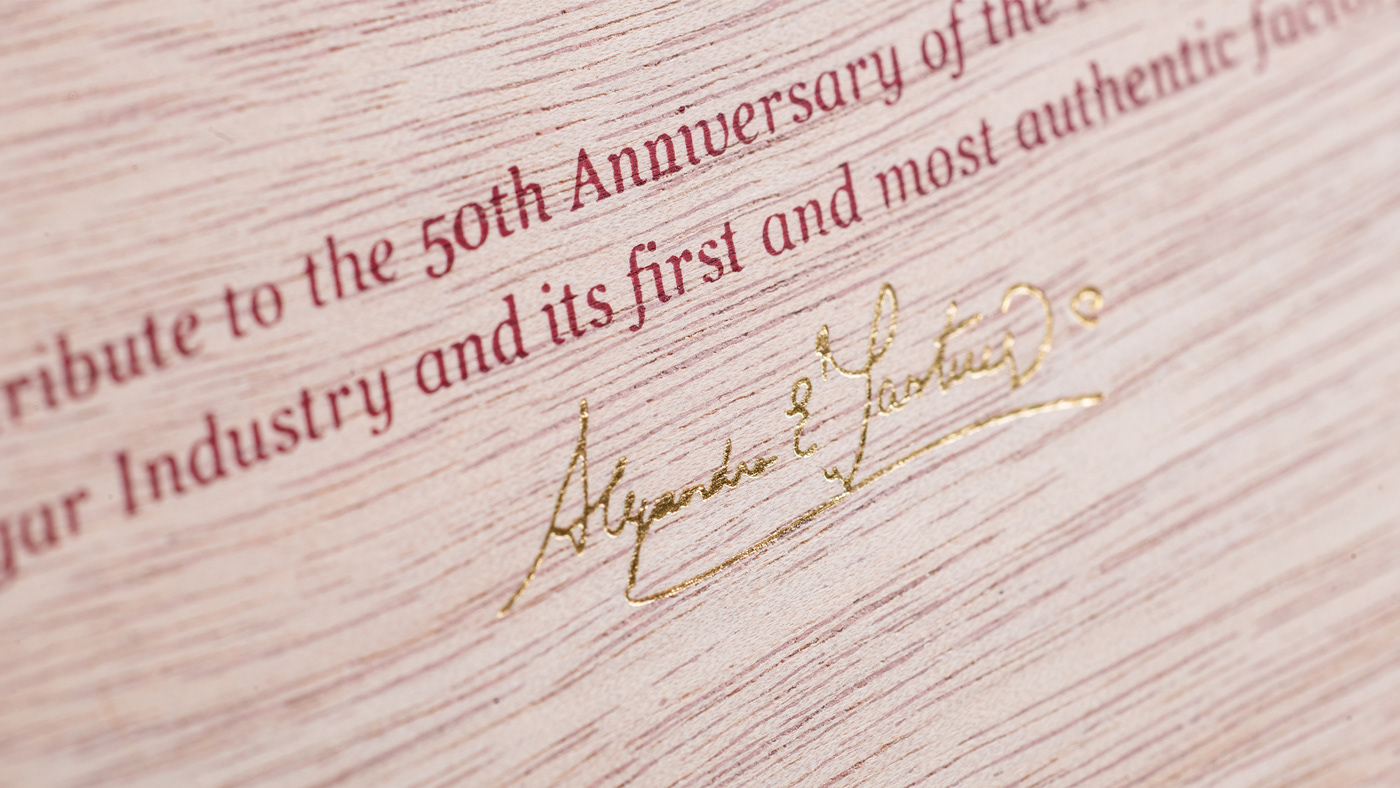 ribute to the 50th Anniversary of the
gar Industry and its first and most authentic
Alejandro E